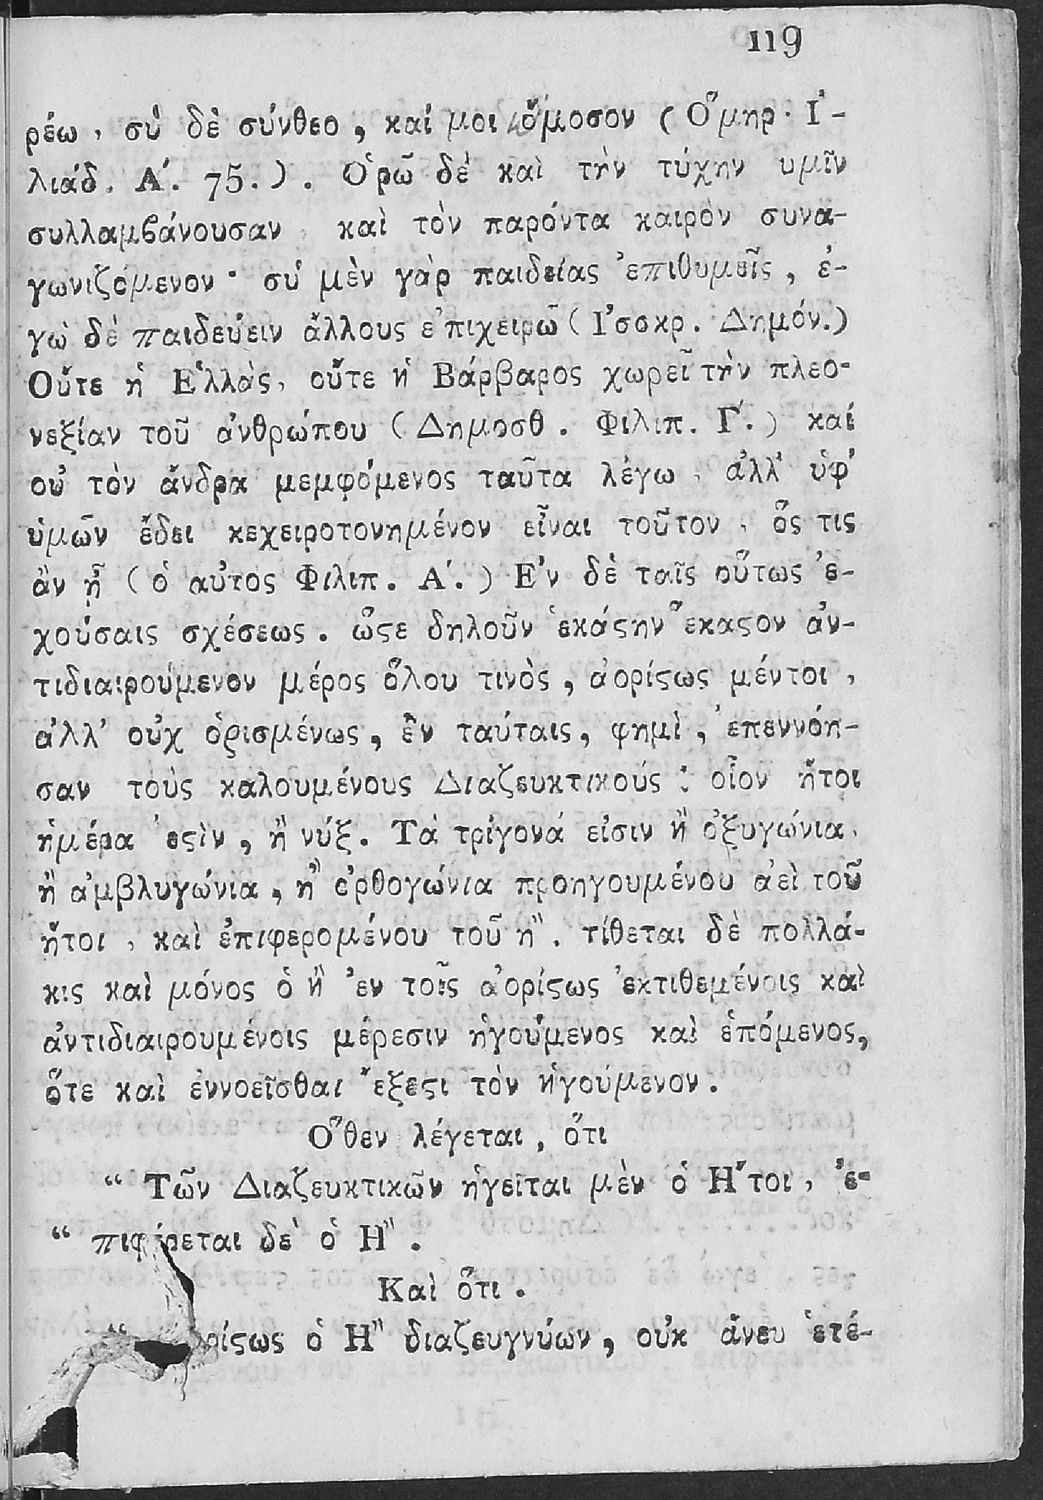 119
ρέω, σὺ δὲ σύνθεο, καί μοι ὄμοσον (Ὅμηρ. Ἰ-
λιάδ. Α΄. 75.). Ὁρῶ δὲ καὶ τὴν τύχην υμῖν
συλλαμβάνουσαν, καὶ τὸν παρόντα καιρὸν συνα-
γωνιζόμενον· σὺ μὲν γὰρ παιδείας ἐπιθυμεῖς, ἐ-
γὼ δὲ παιδεύειν ἄλλους ἐπιχειρῶ (Ἰσοκρ. Δημόν.)
Οὔτε ἡ Ἑλλὰς, οὔτε ἡ Βάρβαρος χωρεῖ τὴν πλεο-
νεξίαν τοῦ ἀνθρώπου (Δημοσθ. Φιλιπ. Γ΄.) καί
οὐ τὸν ἄνδρα μεμφόμενος ταῦτα λέγω, ἀλλ' ὑφ'
ὑμῶν ἔδει κεχειροτονημένον εἶναι τοῦτον, ὅς τις
ἂν ᾖ (ὁ αὐτος Φιλιπ. Α΄.) Ἐν δὲ ταῖς οὕτως ἐ-
χούσαις σχέσεως. ὥςε δηλοῦν ἑκάςην ἕκαςον ἀν-
τιδιαιρούμενον μέρος ὅλου τινὸς, ἀορίςως μέντοι,
ἀλλ' οὐχ ὁρισμένως, ἓν ταύταις, φημὶ, ἐπεννόη-
σαν τοὺς καλουμένους Διαζευκτικούς: οἷον ἤτοι
ἡμέρα ἐςὶν, ἢ νύξ. Τὰ τρίγονά εἰσιν ἢ ὀξυγώνια,
ἢ ἀμβλυγώνια, ἢ ὀρθογώνια προηγουμένου ἀεὶ τοῦ
ἤτοι, καὶ ἐπιφερομένου τοῦ ἢ. τίθεται δὲ πολλά-
κις καὶ μόνος ὁ ἢ ἐν τοῖς ἀορίςως ἐκτιθεμένοις καὶ
ἀντιδιαιρουμένοις μέρεσιν ἡγούμενος καὶ ἑπόμενος,
ὅτε καὶ ἐννοεῖσθαι ἔξεςι τὸν ἡγούμενον.
Ὅθεν λέγεται, ὅτι
“ Τῶν Διαζευκτικῶν ἡγεῖται μὲν ὁ Ἤτοι, ἐ-
“ πιφέρεται δὲ ὁ Ἢ.
Καὶ ὅτι.
ρίςως ὁ Ἢ διαζευγνύων, οὐκ ἄνευ ἑτέ-